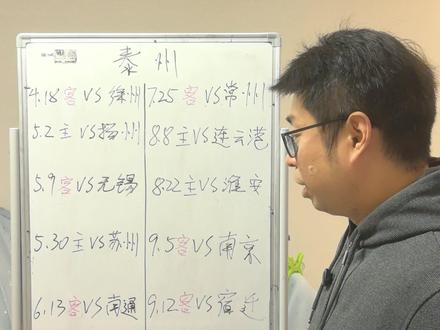 泰州
4.18客VS徐州
5.2主VS扬州
5.9客VS无锡
5.30主VS苏州
6.13客VS南通
7.25客VS常州
8.8主VS连云港
8.22主VS淮安
9.5客VS南京
9.12客VS宿迁